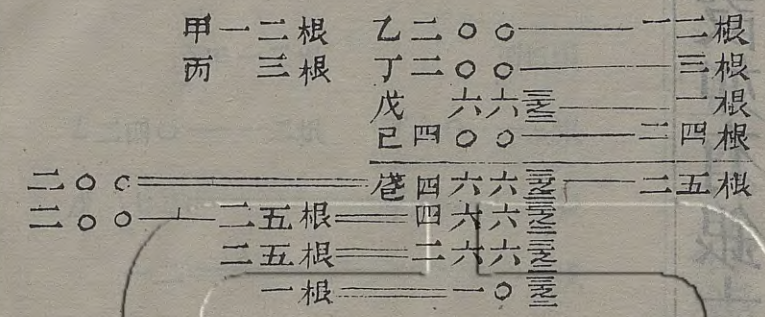 甲一二根 乙二〇〇——一二根
丙 三根 丁二〇〇——三根
戊 六六三之二——一根
己四〇〇——二四根
二〇〇══四六六三之二——二五根
二〇〇——二五根══四六六三之二
二五根══二六六三之二
一根══一〇三之二